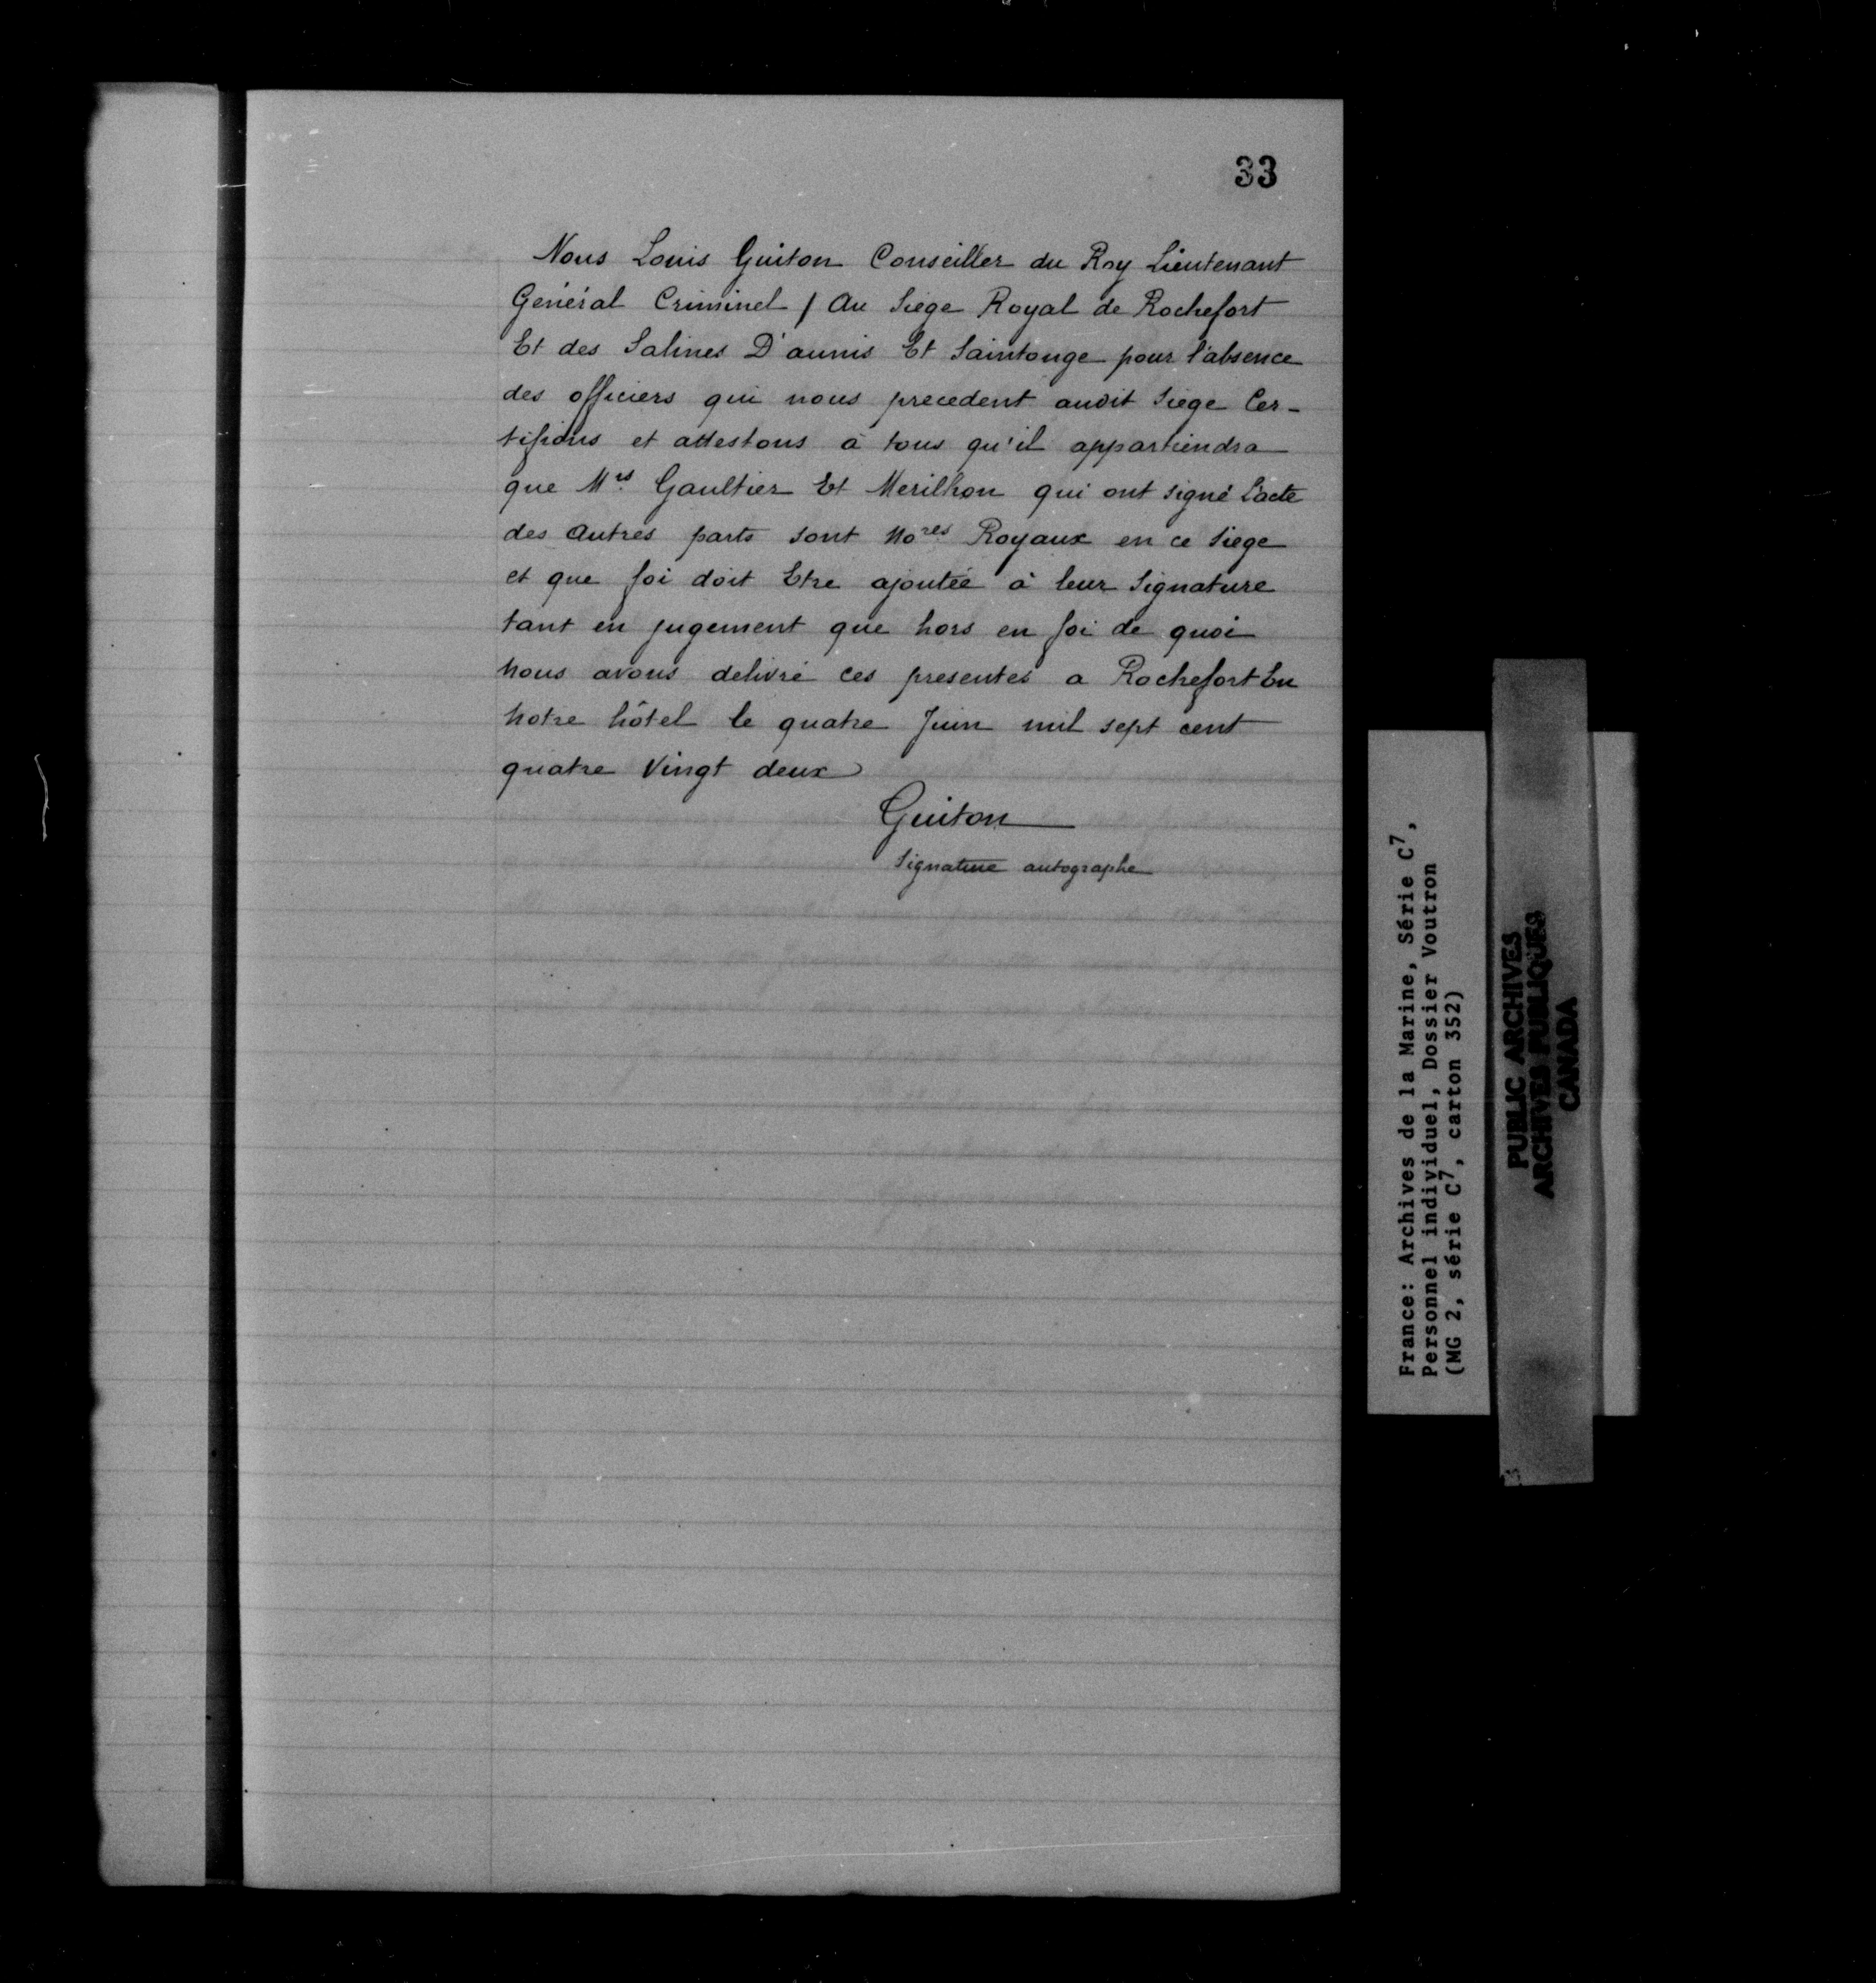 33
Nous Louis Guiton Conseiller du Roy Lieutenant
Général Criminel / Au Siege Royal de Rochefort
Et des Salines D'aunis Et Saintonge pour l'absence
des officiers qui nous precedent audit Siege Cer-
tifions et attestons à tous qu'il appartiendra
que Mrs Gaultier Et Merilhon qui ont signé l'acte
des Autres parts sont Nores Royaux en ce Siege
et que foi doit Etre ajoutée à leur Signature
tant en jugement que hors en foi de quoi
Nous avons delivré ces presentes a Rochefort En
Notre hôtel le quatre Juin mil sept cent
quatre Vingt deux
Guiton
Signature autographe
France: Archives de la Marine, Série C7,
Personnel individuel, Dossier Voutron
(MG 2, série C7, carton 352)
PUBLIC ARCHIVES
ARCHIVES PUBLIQUES
CANADA